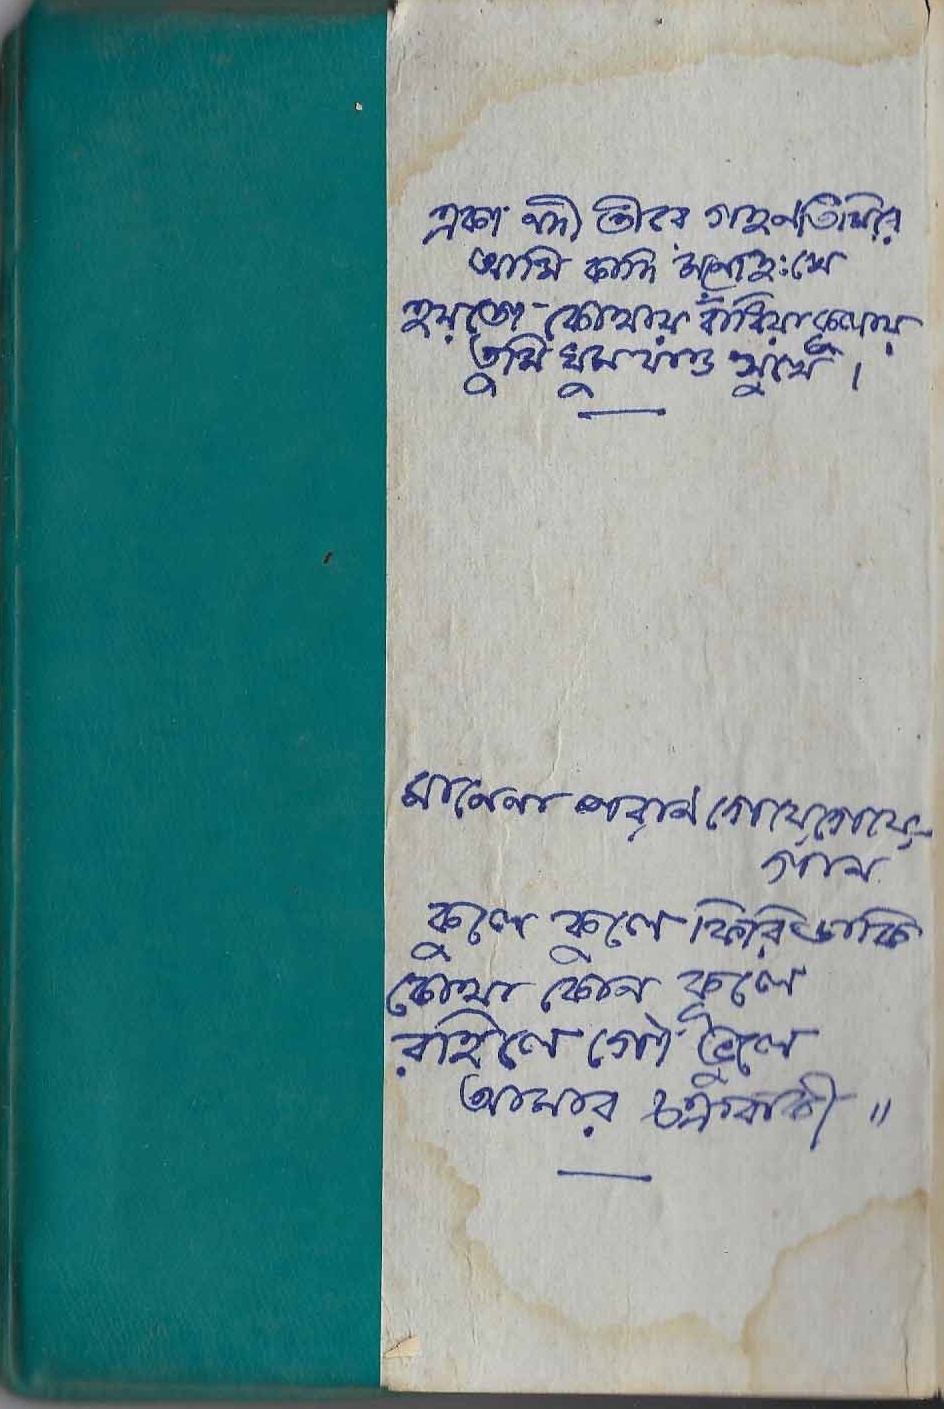 একা নদী তীরে গহন তিমিরে
আমি কাঁদি মনোদুঃখে
হয়তো কোথায় বাঁধিয়া কুলায়
তুমি ঘুম যাও সুখে।
মানেনা পরান গেয়ে গেয়ে
গান
কুলে কুলে ফিরি ডাকি
কোথা কোন কূলে
রহিলে গো ভুলে
আমার চক্রবাকী॥